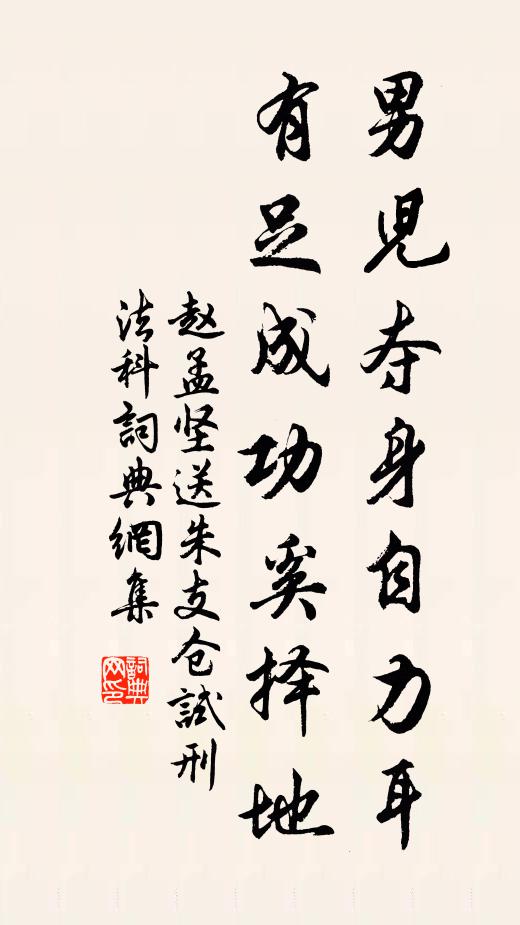 男児夺身自力耳
有足成功奚择地
赵孟坚送朱支仓試刑
法科詞典網集
詞典网印